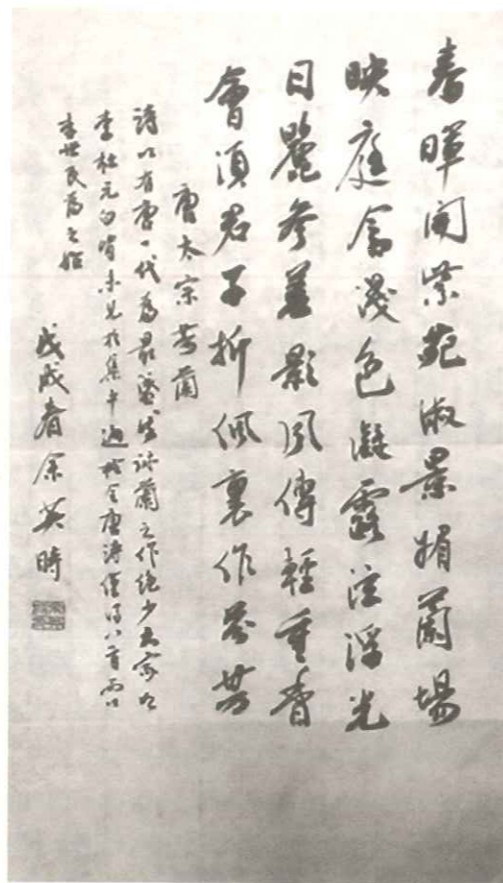 春暉開紫苑淑景媚蘭場
映庭含淺色凝露泫浮光
日麗參差影風傳輕重香
會須君子折佩裏作芬芳
唐太宗芳蘭
詩以有唐一代為最盛然詠蘭之作絕少大家如
李杜元白皆未見於集中遍檢全唐詩僅得八首而以
李世民為之始
戊戌春余英時